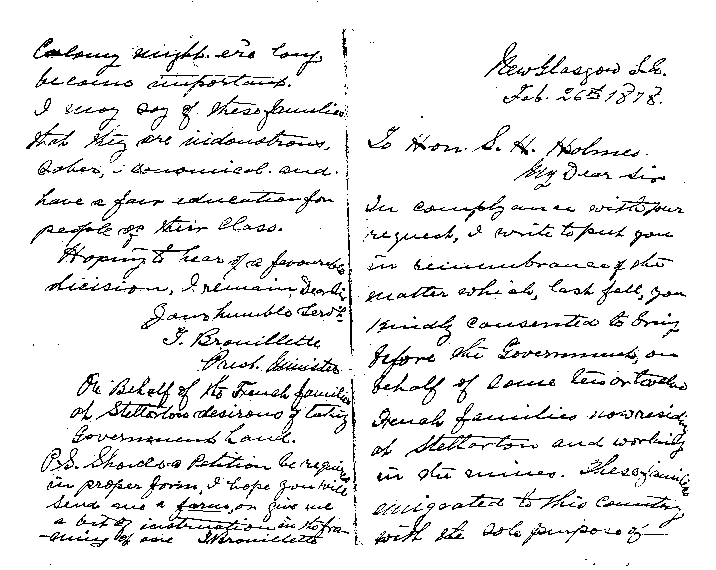 New Glasgow N.S.
Feb. 26th 1878.
To Hon. S. H. Holmes.
My Dear Sir
In complyance with your
request, I write to put you
in remembrance of the
matter which, last fall, you
kindly consented to bring
before the Government, on
behalf of some ten or twelve
French families now residing
at Stellarton and working
in the mines. These families
emigrated to this country
with the sole purpose of
Colony might ere long
become important.
I may say of these families
that they are indoustrous,
sober, economical and
have a fair education for
people of their class.
Hoping to hear of a favourable
dicision, I remain, Dear Sir
Your humble Servt.
T. Brouillette
Presb. Minister
On Behalf of the French families
at Stellarton desirous of taking
Government Land.
P.S. Should a Petition be required
in proper form, I hope you will
send me a form, or give me
a bit of instruction in the fra-
-ming of one T. Brouillette